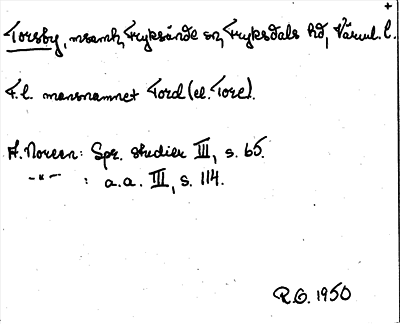 +
Torsby, nsamh, Fryksände sn, Fryksdals hd, Värml. l.
F.l. mansnamnet Tord (el. Tore).
A. Noreen: Spr. studier III, s. 65.
-"- : a.a. III, s. 114.
R.G. 1950